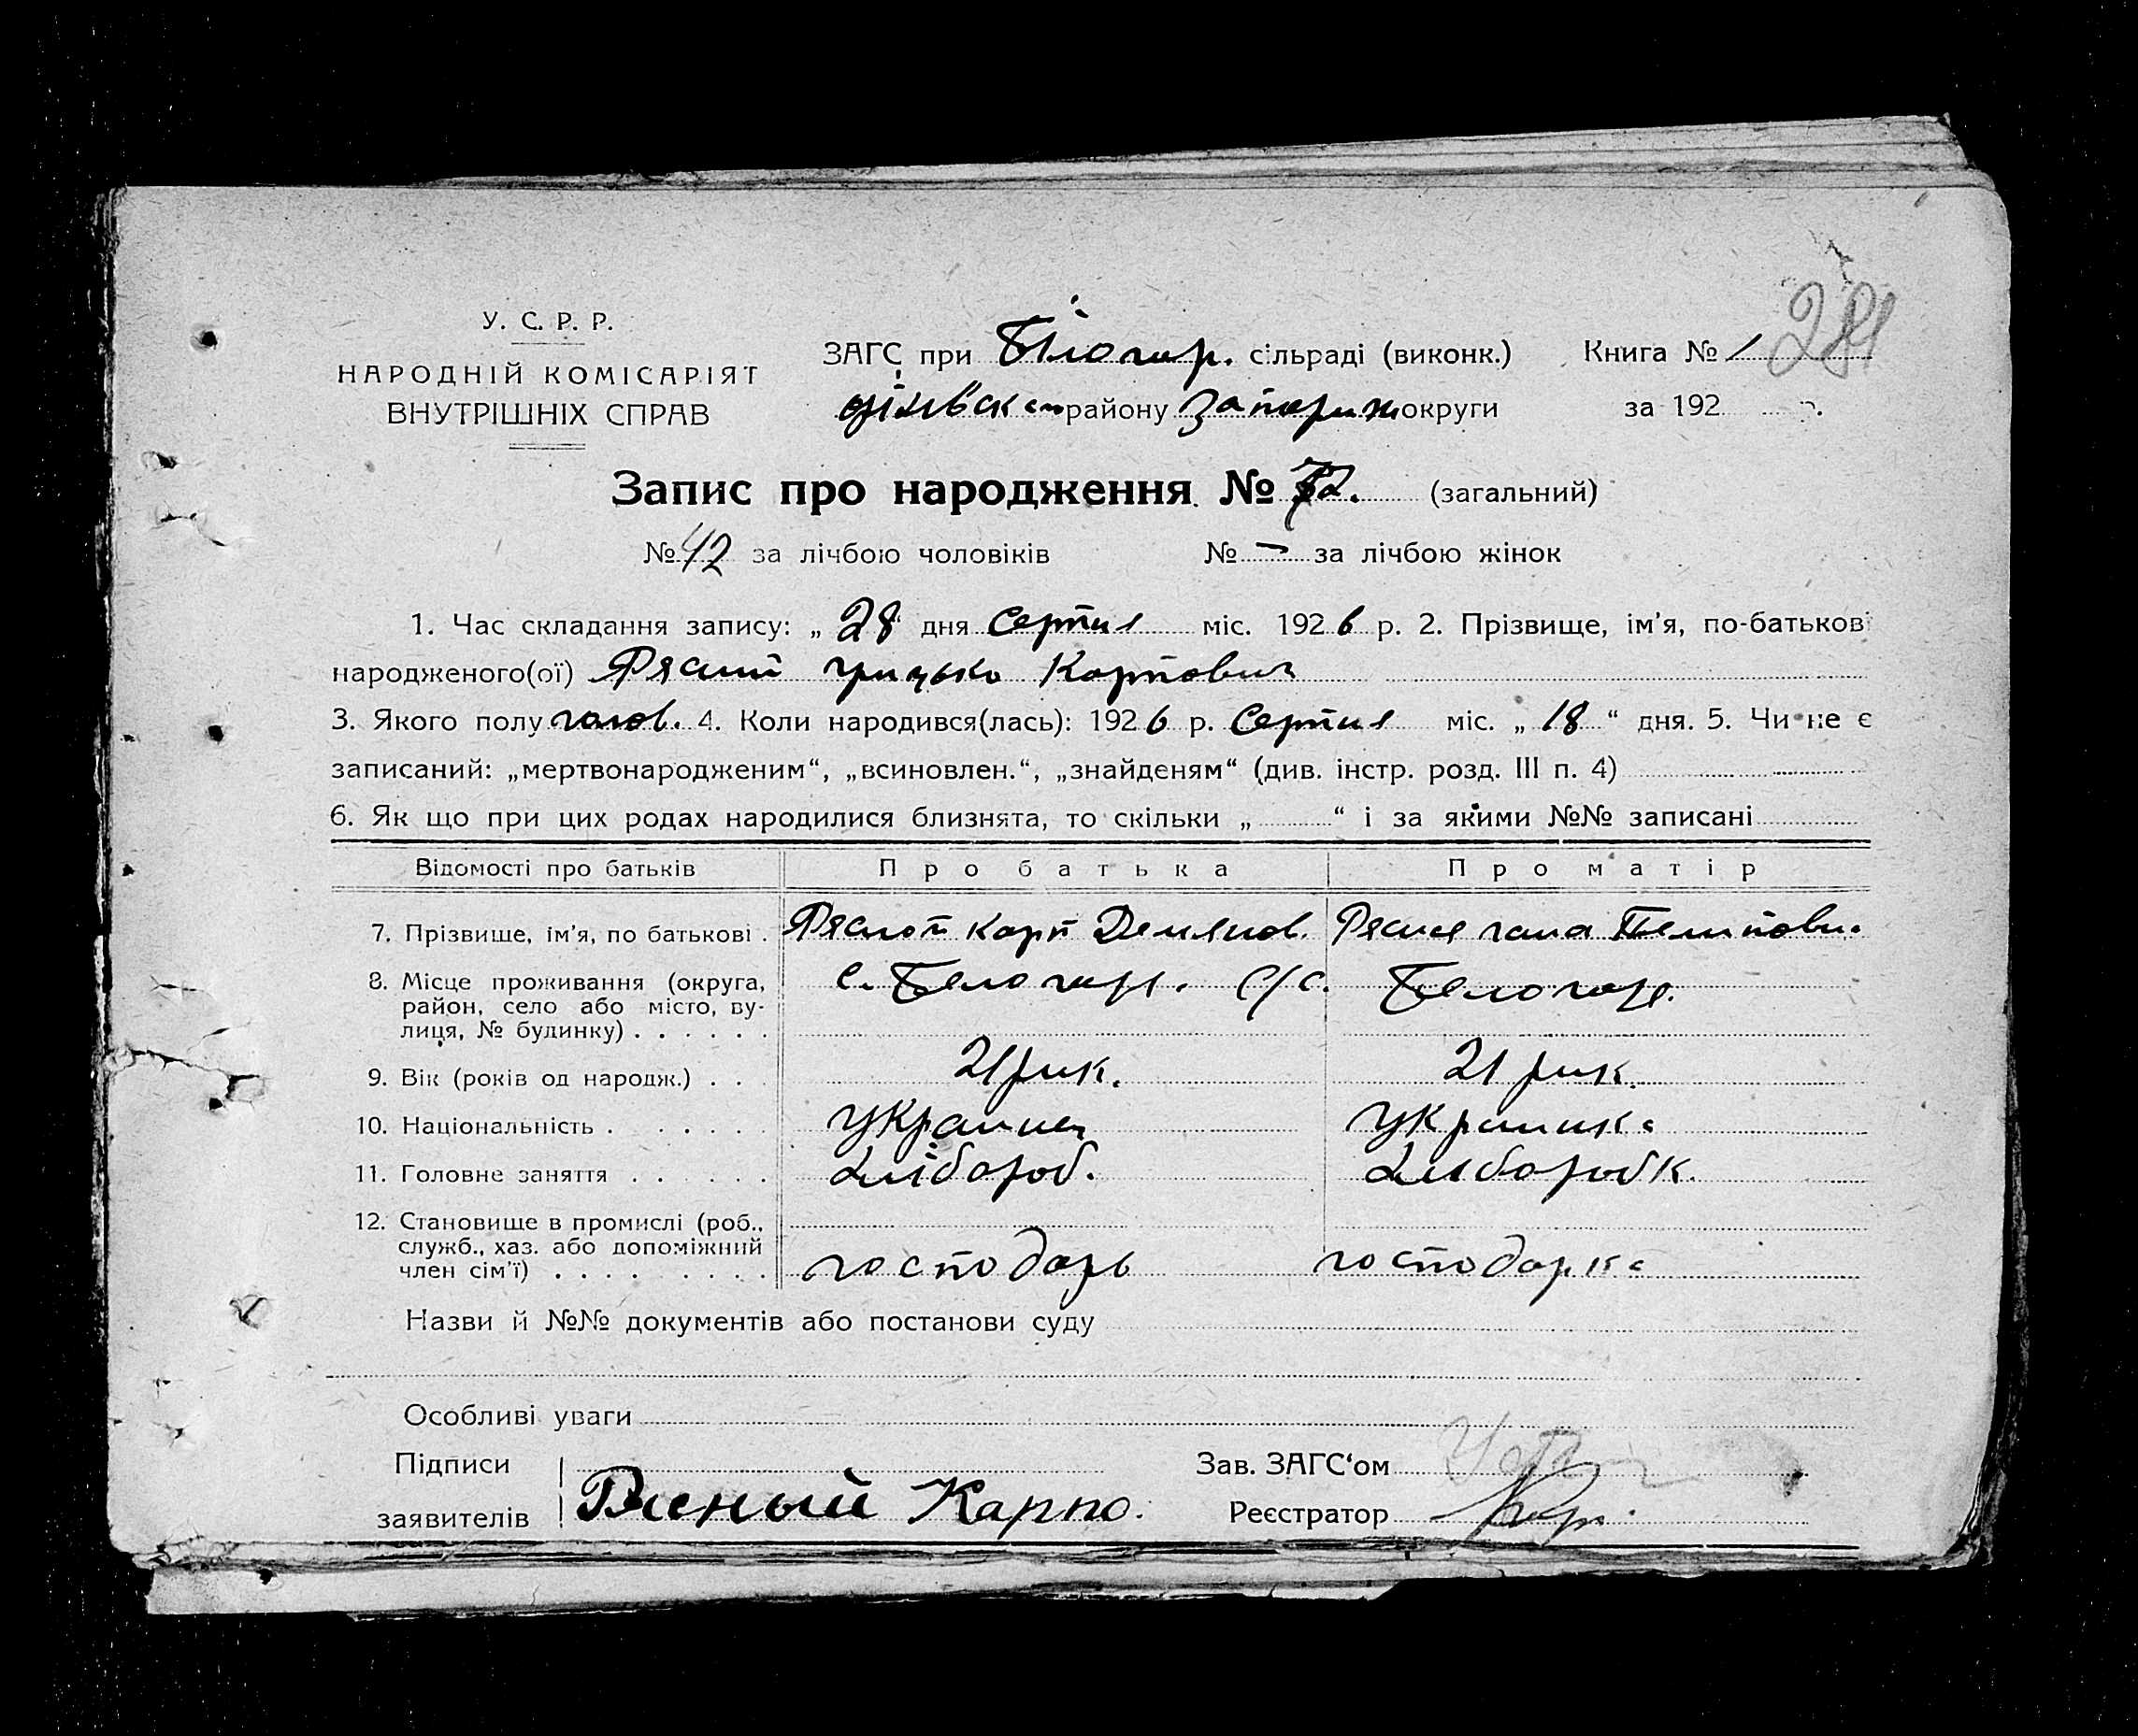 281
У. С. Р. Р.
НАРОДНІЙ КОМІСАРІЯТ
ВНУТРІШНІХ СПРАВ
ЗАГС при Білогир. сільраді (виконк.) Книга № 1
району Запориж округи за 192 р.
Запис про народження № 72. (загальний)
№ 42 за лічбою чоловіків № – за лічбою жінок
1. Час складання запису: „ 28 дня Серпня міс. 1926 р. 2. Прізвище, ім'я, по-батькові
народженого(ої) Рясний Грицько Карпович
3. Якого полу чолов. 4. Коли народився(лась): 1926 р. Серпня міс. „ 18 “ дня. 5. Чи не є
записаний: „мертвонародженим“, „всиновлен.“, „знайденям“ (див. інстр. розд. III п. 4)
6. Як що при цих родах народилися близнята, то скільки „ “ і за якими №№ записані
Відомості про батьків Про батька Про матір
7. Прізвище, ім'я, по батькові . Рясной Карп Демянов. Рясная Пелипови.
8. Місце проживання (округа, с. Белогир. С/с. Белогир.
район, село або місто, ву-
лиця, № будинку) . . . . . .
9. Вік (років од народж.) . . 21 рик. 21 рик.
10. Національність . . . . . . Украинец Украинка
11. Головне заняття . . . . . . Хлібороб. Хлиборобк.
12. Становище в промислі (роб.,
служб., хаз. або допоміжний
член сім'ї) . . . . . . . . . господарь господарка
Назви й №№ документів або постанови суду
Особливі уваги
Підписи Зав. ЗАГС‘ом
заявителів Рясный Карпо. Реєстратор